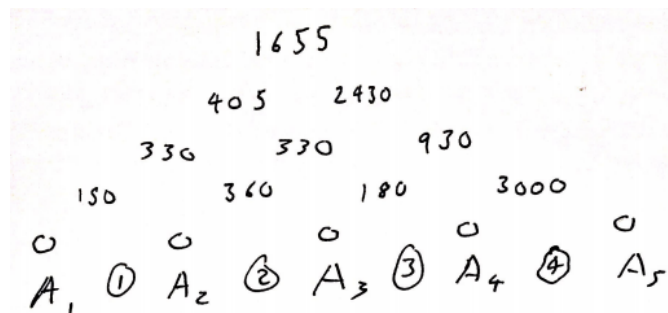 1655
405 2430
330 330 930
150 360 180 3000
0 0 0 0 0
A₁ ① A₂ ② A₃ ③ A₄ ④ A₅